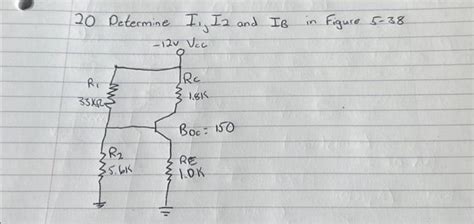 20 Determine I1, I2 and IB in Figure 5-38
-12V Vcc
R1
33KΩ
RC
1.8K
BDC = 150
R2
5.6K
RE
1.0K